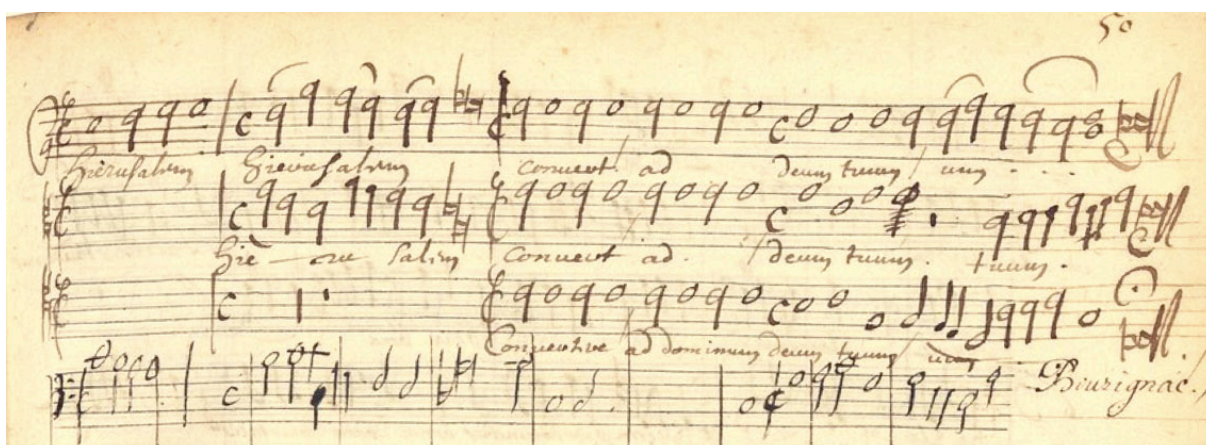 50
hierusalem hierusalem convert. ad deum tuum
hie - ru salem convert ad. deum tuum. tuum.
Convertere ad dominum deum tuum
Bouzignac.